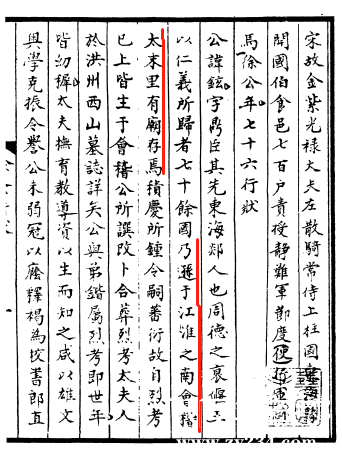 宋故金紫光禄大夫左散騎常侍上柱國東海縣
開國伯食邑七百户責授静難軍莭度使行軍司
馬徐公年七十六行狀
公諱鉉字鼎臣其先東海郯人也周德之衰偃王
以仁義所歸者七十餘國乃遜于江淮之南會稽
太末里有廟存焉積慶所鍾令嗣蕃衍故自烈考
已上皆生于會稽公所撰改卜合葬烈考太夫人
於洪州西山墓誌詳矣公與弟鍇属烈考即世年
皆幼穉太夫撫育教導資以生而知之咸以雄文
奥學克振令譽公未弱冠以廕釋褐為校書郎直